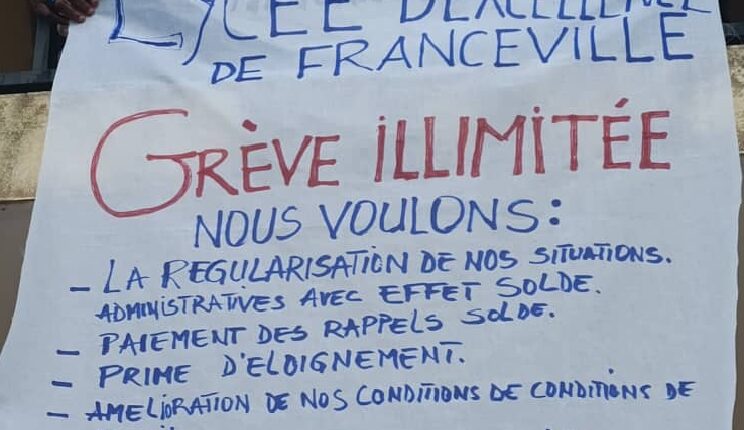 LYCÉE D'EXCELLENCE
DE FRANCEVILLE
GRÈVE ILLIMITÉE
NOUS VOULONS :
- LA REGULARISATION DE NOS SITUATIONS.
ADMINISTRATIVES AVEC EFFET SOLDE.
- PAIEMENT DES RAPPELS SOLDE.
- PRIME D'ELOIGNEMENT.
- AMELIORATION DE NOS CONDITIONS DE CONDITIONS DE